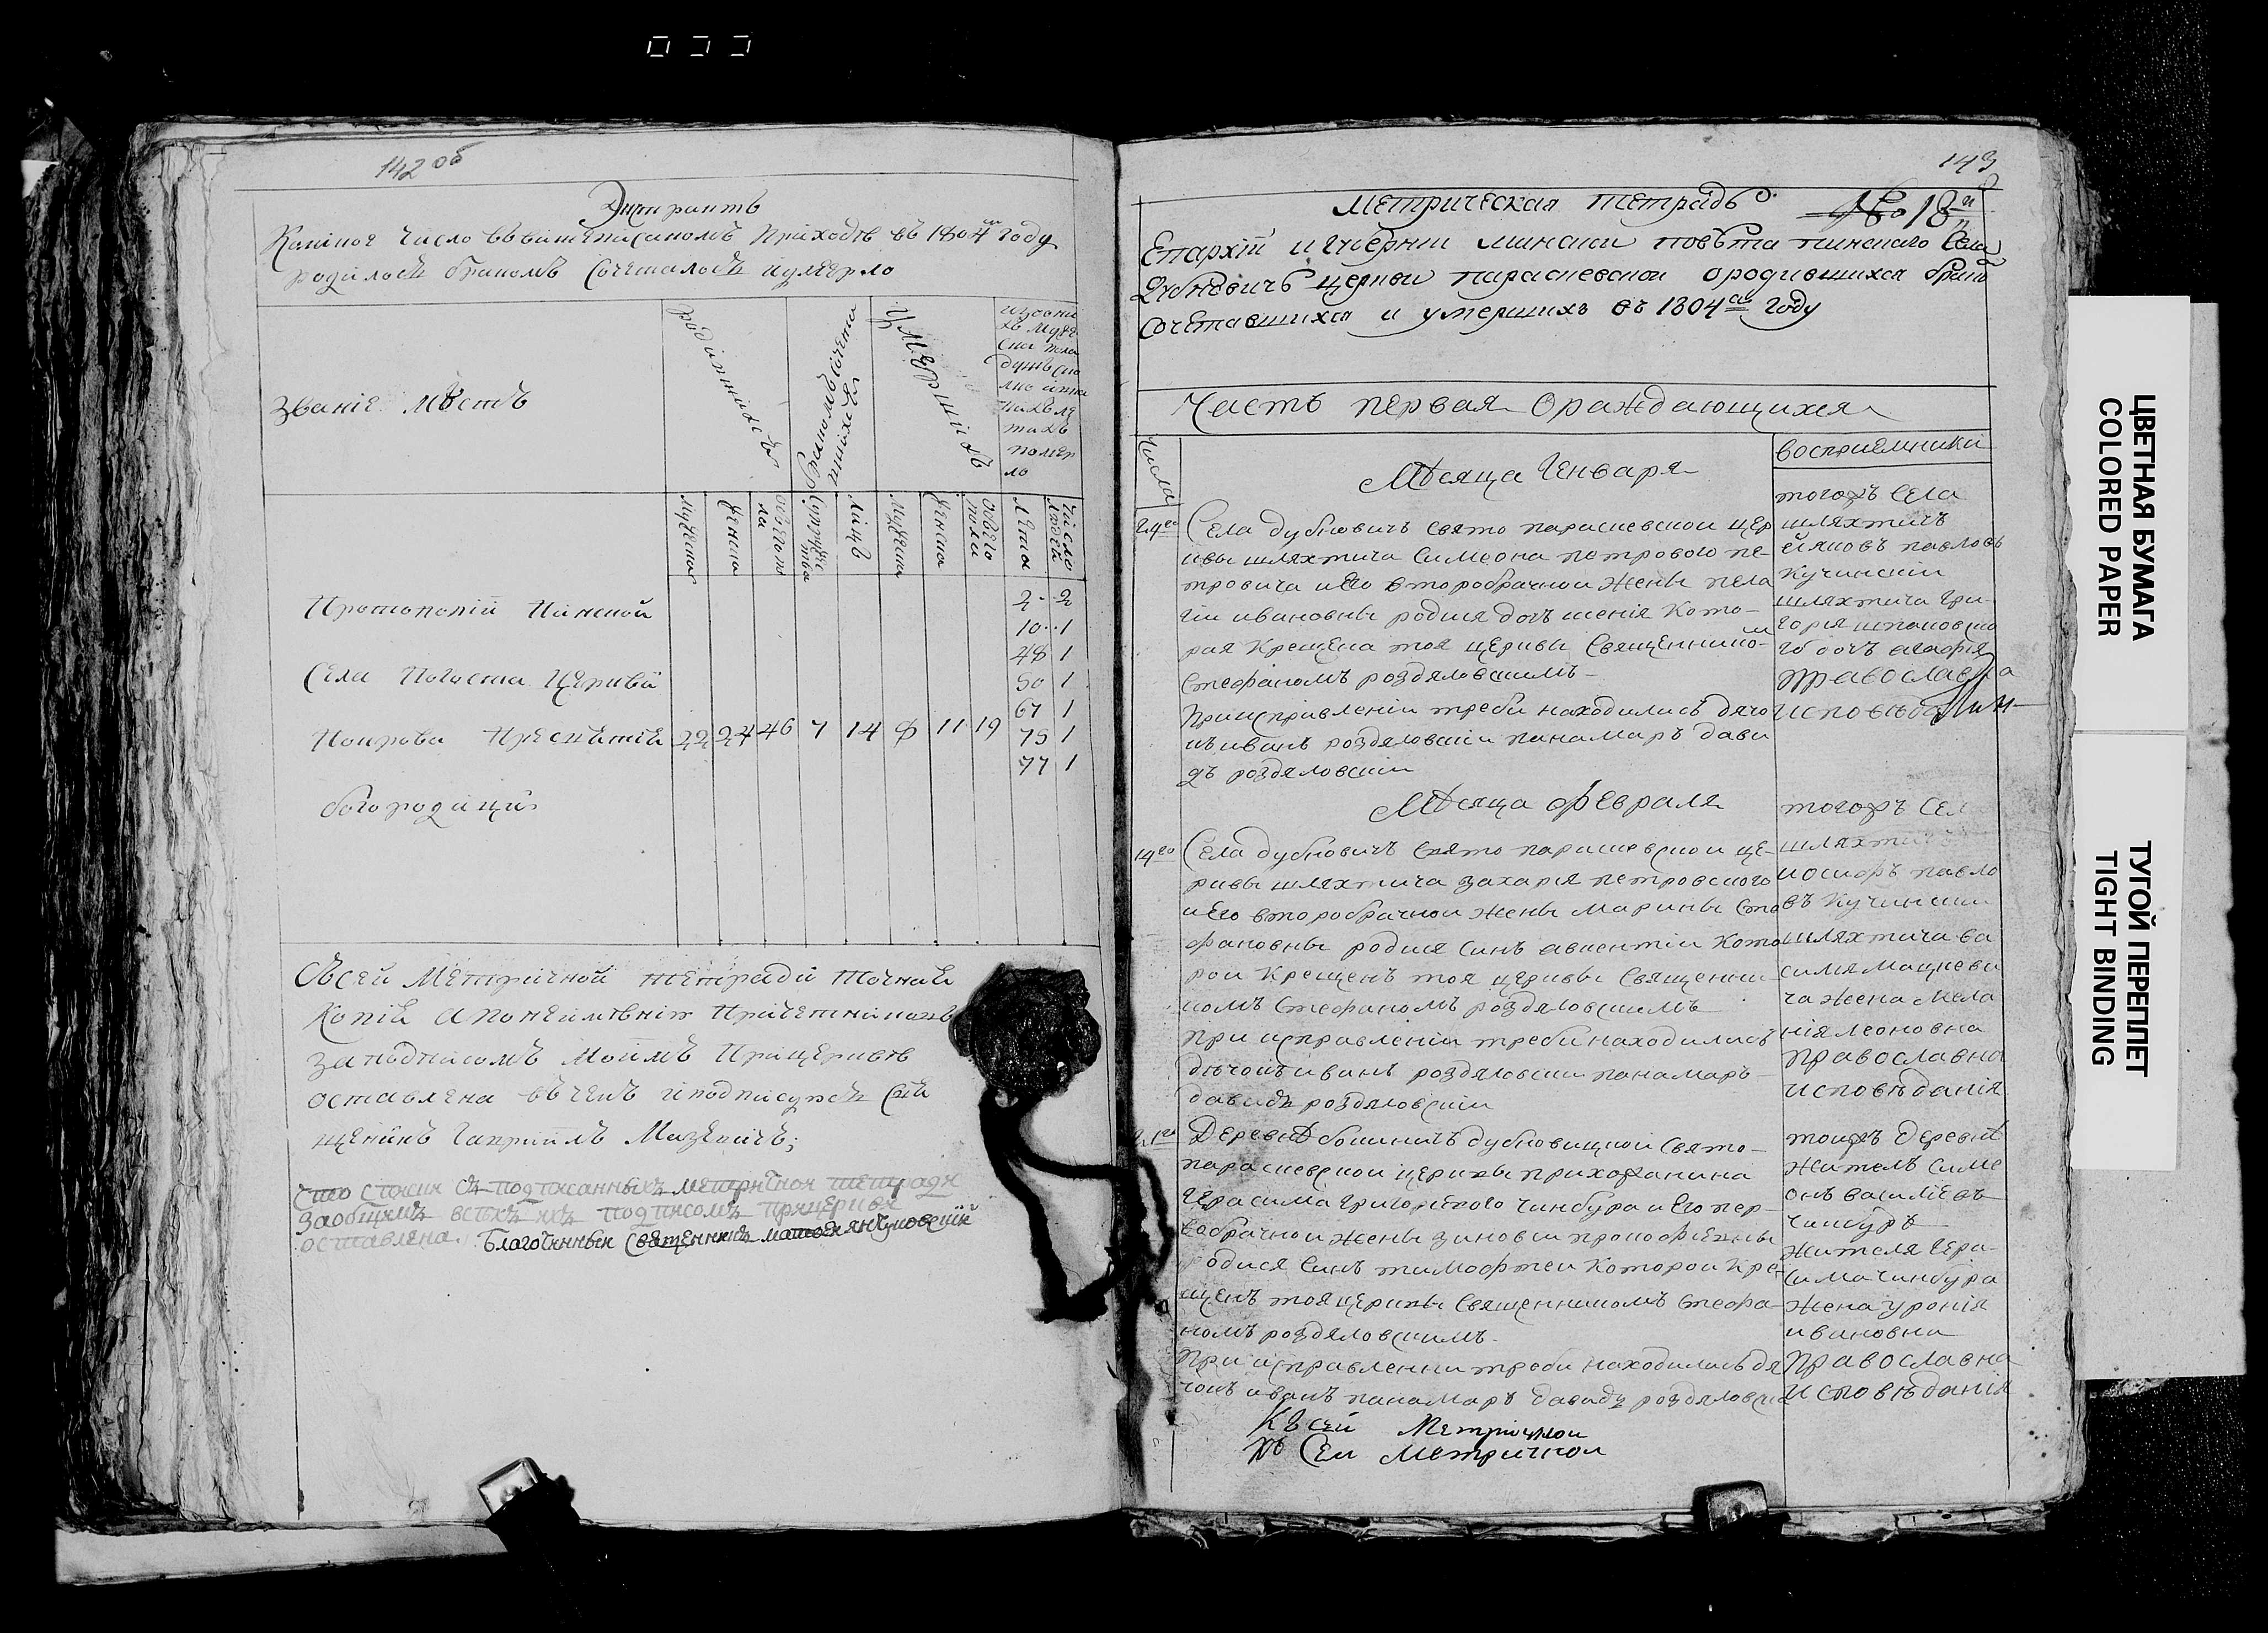 142 об
Экстрактъ
Коликое число ввышеписаномъ приходѣ въ 1804м году
родилось бракомъ сочеталось иумерло
званіе мѣстъ
родившихсь
бракомъ сочетавшихсь
умершихъ
мужеска
женска
обоего пола
супружества
лицъ
мужеска
женска
обоего пола
лета
число людей
Протопопіи Пинской
Села Погоста Церкви
Покрова Пресвятія
богородици
22 24 46 7 14 8 11 19
2 2
10 1
48 1
50 1
67 1
75 1
77 1
Съсей Метричной тетради точная
Копія
заподписомъ моимъ Прицерквѣ
оставлена въчемъ іподписуюсь Свя
щеникъ Гавріилъ Мазевичъ;
Что списки съ подписанныхъ метричной тетради
заобщимъ всѣхъ ихъ подписомъ прицерквѣ
оставлена. Благочинный Священникъ
143
Метрическая тетрадь No 18й
Епархіи игуберніи минской повѣта пинскаго села
Дубновичъ церкви параскевской ородившихся брако
сочетавшихся и умершихъ въ 1804м году
Часть первая Ораждающихся
числа
восприемники
Мѣсяца Генваря
24го
Села дубновичъ свято параскевской цер
кви шляхтича Симеона петрового пе-
тровича иЕго второбрачной жены пела
гіи ивановны родися дочъ ксенія Кото-
рая Крещена тоя церкви Священником
Стефаномъ роздяловскимъ
Приисправленіи треби находились дячо
къ иванъ роздяловскіи панамаръ дави
дъ роздяловскіи
тогожъ Села
шляхтичъ
павловъ
Кучинскіи
шляхтича Гри-
горія
дочъ агафія
православна
исповѣданія
Мѣсяца февраля
14го
Села дубновичъ Свято параскевской це-
ркви шляхтича захарія петровского
иЕго второбрачной жены Марины Сте
фановны родися Синъ авкентіи Кото
рои Крещенъ тоя церквы Священни-
комъ Стефаномъ роздяловскимъ
При исправленіи треби находились
дячокъ иванъ роздяловскіи панамаръ
давидъ роздяловскіи
тогожъ Сел
шляхтичъ
иосифъ павло
въ Кучинскіи
шляхтича ва
силія мацкеви
ча жена мела
нія леоновна
православна
исповѣданія
21го
Деревнѣ бокиничъ дубновицкой Свято-
параскевской церквы прихожанина
Герасима григорыевого чинбура и Его пер-
вобрачной жены зиновіи прокофіевны
родися Синъ тимофтеи Которои Кре-
щенъ тоя церквы Священникомъ Стефа-
номъ роздяловскимъ
При исправленіи треби находились дя
чокъ иванъ панамаръ давидъ роздяловскі
тоижъ деревнѣ
житель Симе
онъ василіевъ
чинбуръ
жителя Гера-
сима чинбура
жена
ивановна
Православна
исповѣданія
Къ сей Метричной
Къ Сеи Метричной
ЦВЕТНАЯ БУМАГА
COLORED PAPER
ТУГОЙ ПЕРЕПЛЕТ
TIGHT BINDING